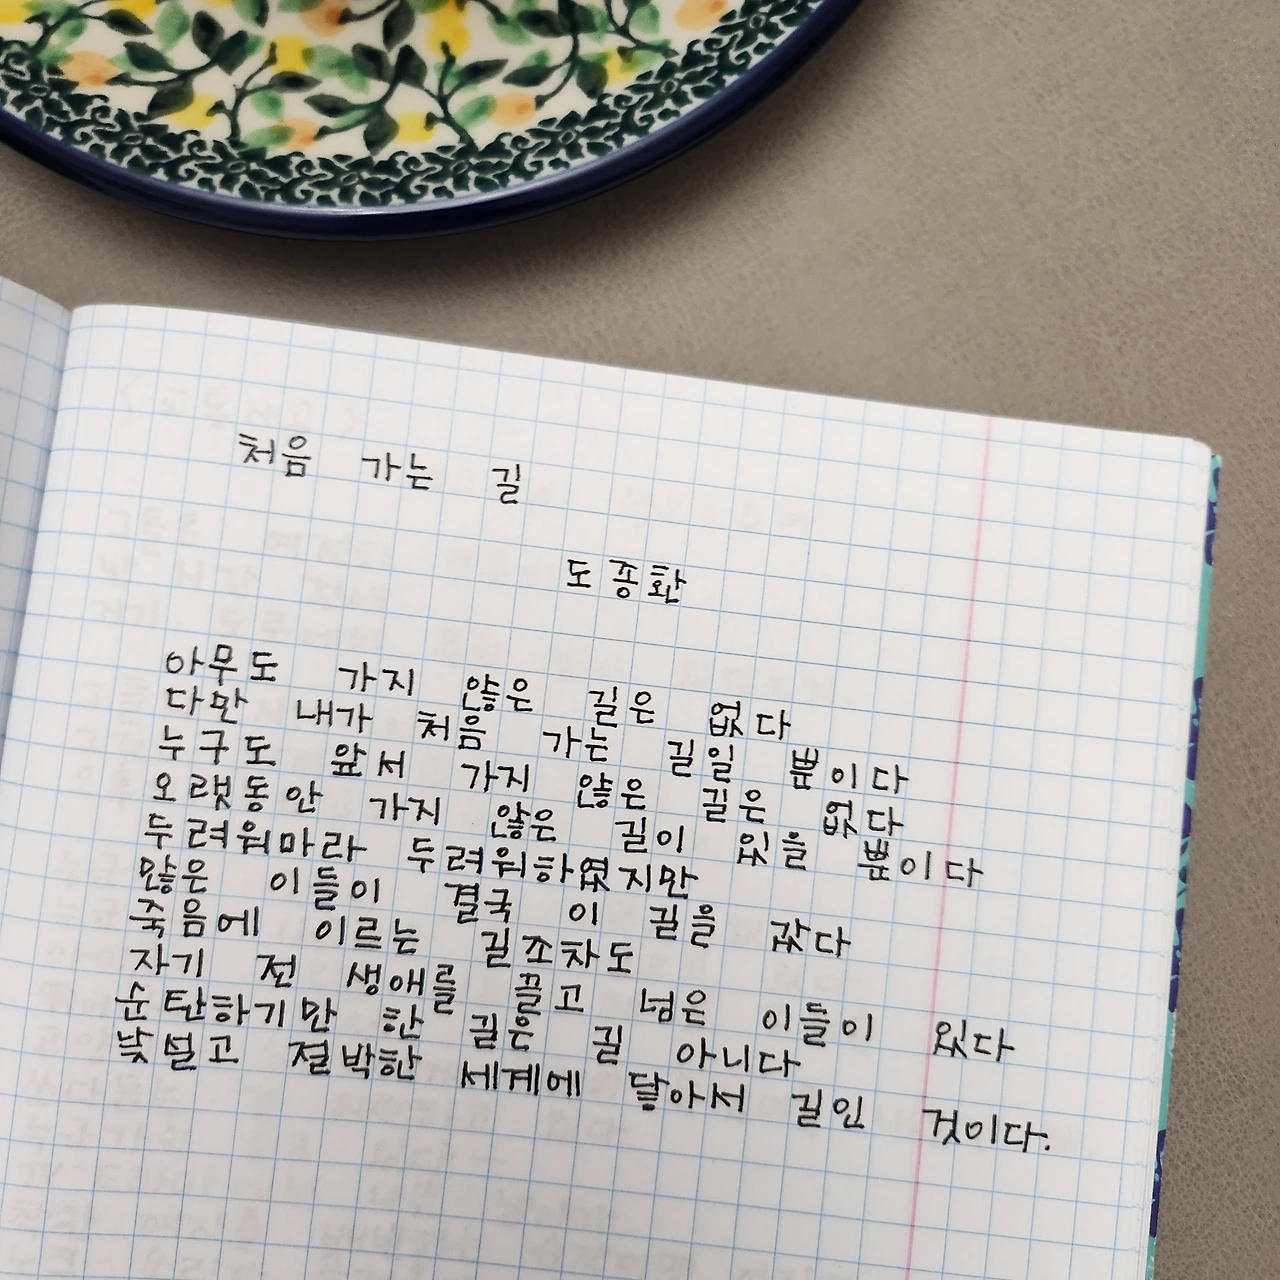 처음 가는 길
도종환
아무도 가지 않은 길은 없다
다만 내가 처음 가는 길일 뿐이다
누구도 앞서 가지 않은 길은 없다
오랫동안 가지 않은 길이 있을 뿐이다
두려워마라 두려워하였지만
많은 이들이 결국 이 길을 갔다
죽음에 이르는 길조차도
자기 전 생애를 끌고 넘은 이들이 있다
순탄하기만 한 길은 길 아니다
낯설고 절박한 세계에 닿아서 길인 것이다.